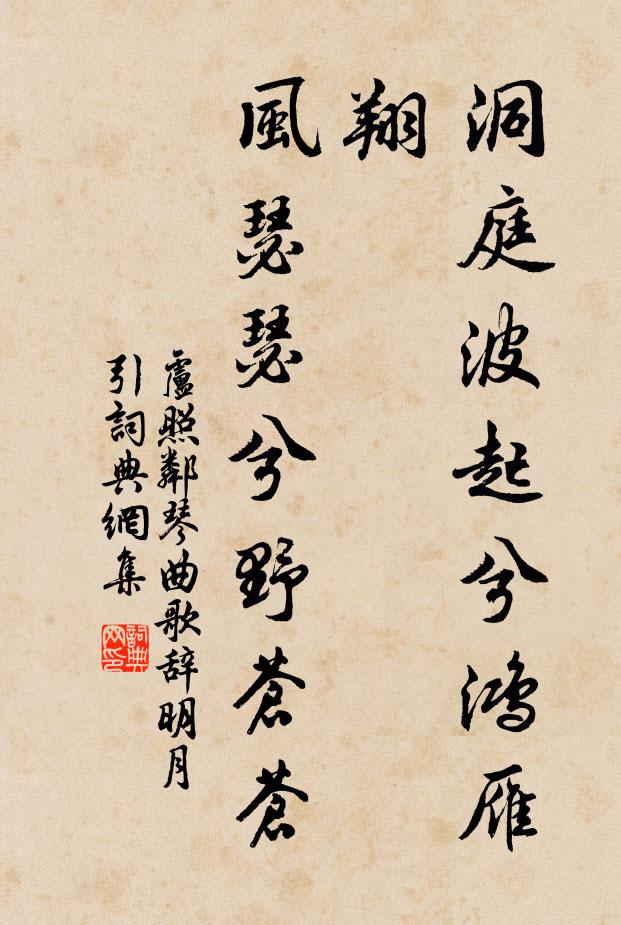 洞庭波起兮鸿雁
翔
風瑟瑟兮野蒼蒼
盧照鄰琴曲歌辞明月
引詞典網集
詞典
网印